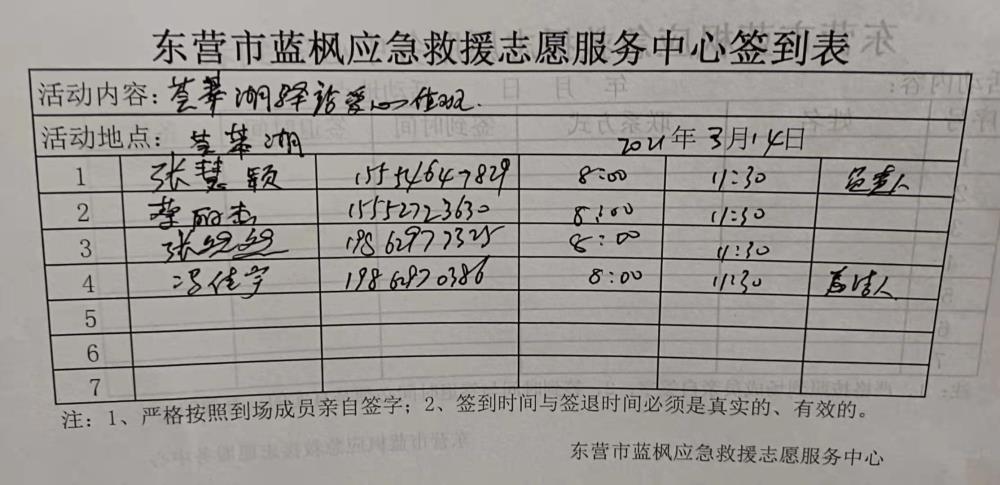 东营市蓝枫应急救援志愿服务中心签到表
活动内容：莒莱湖驿站爱心值班
活动地点：莒莱湖 2021年3月14日
1 张慧颖 15554647829 8:00 11:30 负责人
2 15552723630 8:00 11:30
3 张丝丝 19862977325 8:00 11:30
4 冯佳宇 19869870386 8:00 11:30
5
6
7
注：1、严格按照到场成员亲自签字；2、签到时间与签退时间必须是真实的、有效的。
东营市蓝枫应急救援志愿服务中心